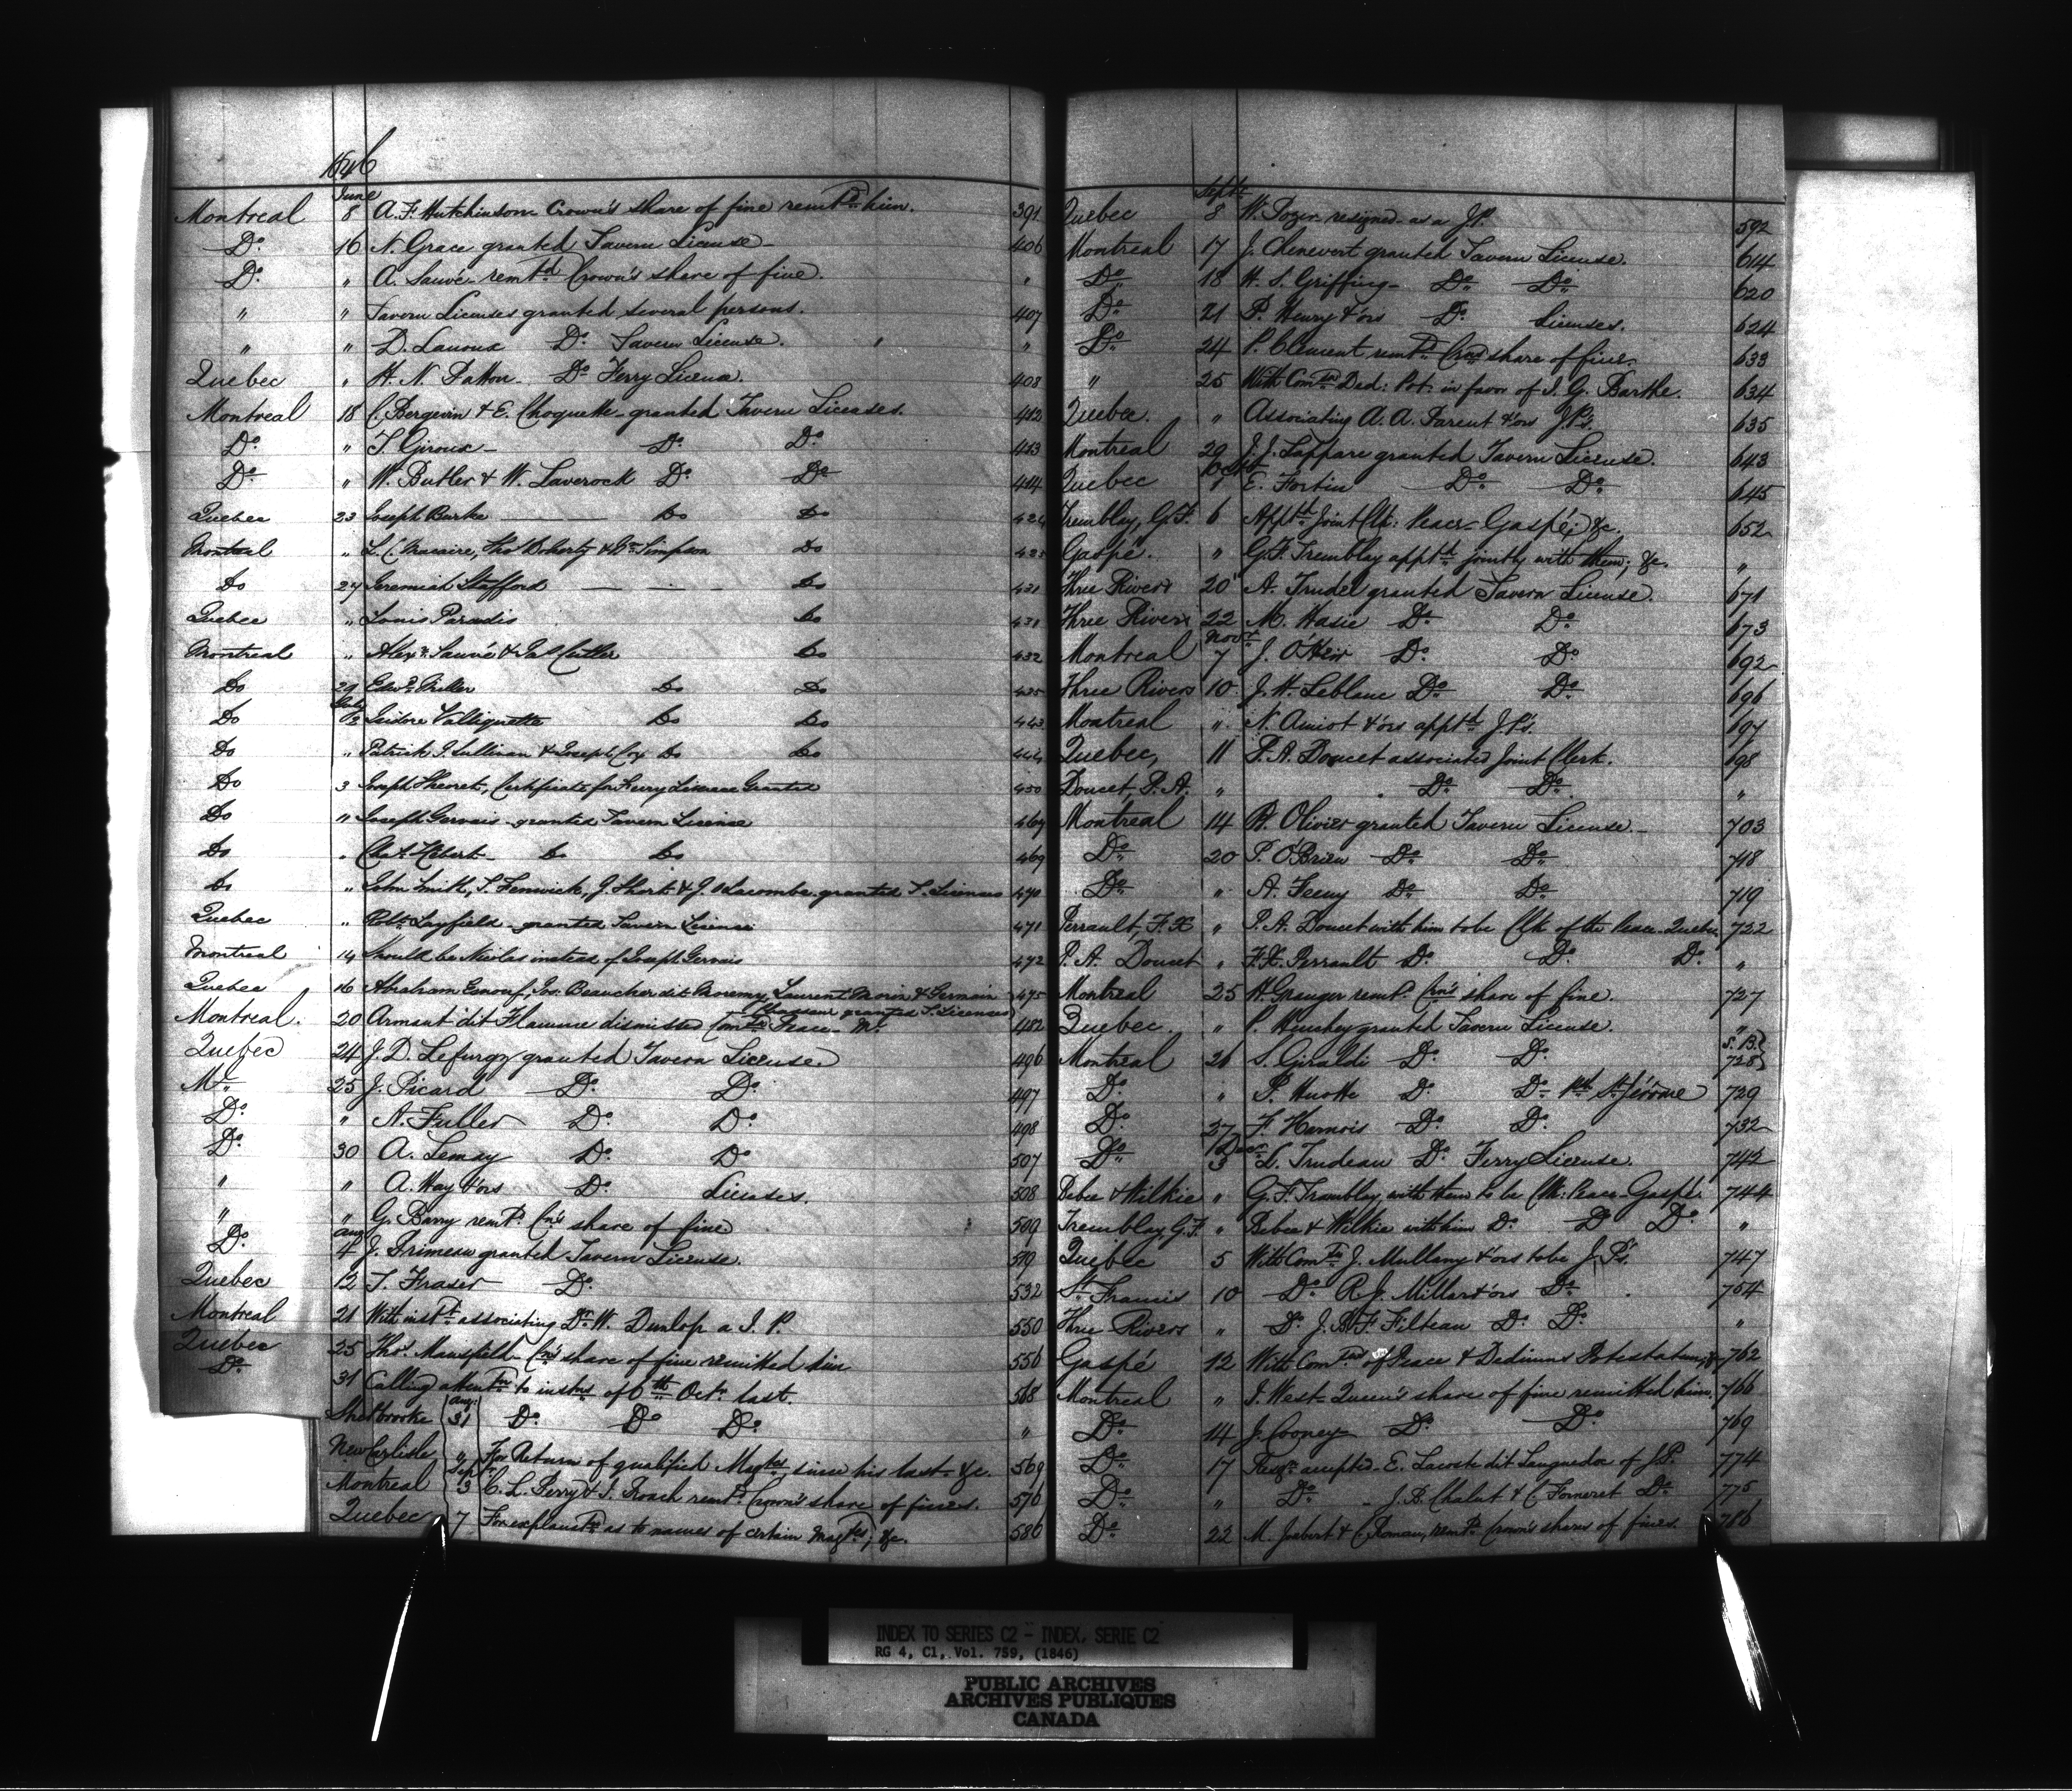 1846
June
Montreal 8 A. F. Hutchinson Crown's share of fine remtd him. 391
Do. 16 N. Grace granted Tavern License 406
Do. " A. Sauvé remtd Crown's share of fine. "
" " Tavern Licenses granted several persons. 407
" " D. Lanoux Do. Tavern License. "
Quebec " H. N. Patton Do Ferry License. 408
Montreal 18 C. Bergevin & E. Choquette granted Tavern Licenses. 412
Do. " T. Giroux Do. Do. 413
Do. " W. Butler & W. Laverock Do. Do. 414
Quebec 23 Joseph Burke Do Do 424
Montreal " L. C. Macaire, Thos Doherty & Simpson Do 425
Do 27 Jeremiah Stafford Do 431
Quebec " Louis Paradis Do 431
Montreal " Alexr. Sauvé & Jas Cutler Do 432
Do 29 Edwd Miller Do Do 435
July
Do 1/2 Isidore Valliquette Do Do 443
Do " Patrick J. Sullivan & Joseph Cox Do Do 444
Do 3 Joseph Theoret, Certificate for Ferry License Granted 450
Do " Joseph Gervais granted Tavern License 469
Do " Chas. Hebert Do Do 469
Do " John Smith, T. Fenwick, J. Short & J. Lacombe granted T. Licenses 470
Quebec " Robt Layfield granted Tavern License 471
Montreal 14 Should be Nicolas instead of Joseph Gervais 472
Quebec 16 Abraham Esnouf, Jos. Beaucher dit Morency, Laurent Morin & Germain 475
Chasseur granted T. Licenses
Montreal. 20 Armant dit Flamme dismissed Comn Peace M. 482
Quebec 24 J. D. Lefurgy granted Tavern License. 496
Ml. 25 J. Picard Do. Do. 497
Do. " A. Fuller Do. Do. 498
Do. 30 A. Lemay Do. Do 507
" " A. Hay & ors Do. Licenses. 508
" " G. Barry remtd. Cn's share of fine 509
Aug
Do. 4 J. Primeau granted Tavern License. 519
Quebec 12 T. Fraser Do. 532
Montreal 21 With inst. associating Dr. W. Dunlop a J. P. 550
Quebec 25 Thos. Mansfield Cn's share of fine remitted him 556
Do. 31 Calling attentn to instns of 6th Octr last. 568
Sherbrooke Aug: 31 Do. Do Do. "
New Carlisle " For Return of qualified Magtes since his last &c. 569
Sept
Montreal 3 C. L. Perry & T. Roach remtd. Crown's share of fines. 576
Quebec 7 For explanatn as to names of certain Magtes; &c. 586
Septr
Quebec 8 W. Tozer resigned as a J.P. 592
Montreal 17 J. Chenevert granted Tavern License. 614
Do. 18 H. S. Griffing Do. Do. 620
Do. 21 P. Henry & ors Do. Licenses. 624
Do. 24 P. Clement remtd. Crn's share of fine. 633
" 25 With Comtn Ded: Pot: in favor of J. G. Barthe. 634
Quebec. " Associating A. A. Parent & ors J.P's. 635
Montreal 29 J. J. Lappare granted Tavern License. 643
Octr
Quebec 1 E. Fortin Do. Do. 645
Tremblay, G. F. 6 Apptd Joint Clk: Peace Gaspé; &c. 652
Gaspé. " G. F. Tremblay apptd jointly with them; &c. "
Three Rivers 20 A. Trudel granted Tavern License. 671
Three Rivers 22 M. Hasie Do. Do. 673
Novr
Montreal 7 J. O'Heir Do. Do. 692
Three Rivers 10 J. H. Leblanc Do. Do. 696
Montreal " N. Amiot & ors apptd J.P's. 697
Quebec, 11 P. A. Doucet associated Joint Clerk. 698
Doucet, P. A. " Do. Do. "
Montreal 14 B. Olivier granted Tavern License. 703
Do. 20 P. O'Brien Do. Do. 718
Do. " A. Feeny Do. Do. 719
Perrault, F. X " P. A. Doucet with him to be Clk of the Peace Quebec 722
P. A. Doucet " F. X. Perrault Do. Do. Do. "
Montreal 25 H. Granger remtd. Crn's share of fine. 727
Quebec. " P. Henchey granted Tavern License. "
Montreal 26 S. Giraldi Do. Do. S. B. 728
Do. " P. Huotte Do. Do. St. Jérôme 729
Do. 27 F. Harnois Do. Do. 732
Decr
Do. 3 L. Trudeau Do. Ferry License. 742
Bebee & Wilkie " G. F. Tremblay, with them to be Clk: Peace Gaspé. 744
Tremblay, G. F. " Bebee & Wilkie with him Do. Do Do. "
Quebec 5 With Comtn J. Mullany & ors to be J.P's. 747
St. Francis 10 Do. R. J. Millar & ors Do. 754
Three Rivers " Do. J. B. F. Filteau Do. Do. "
Gaspé 12 With Comtns of Peace & Dedimus Potestatum; & 762
Montreal " J. West Queen's share of fine remitted him. 766
Do. 14 J. Cooney Do. Do. 769
Do. 17 Resgn. accepted E. Lacoste dit Languedoc of J.P. 774
Do. " Do. J. B. Chalut & C. Forneret Do. 775
Do. 22 M. Joubert & C. Roman, remtd. Crown's share of fines. 786
INDEX TO SERIES C2 - INDEX, SERIE C2
RG 4, C1, Vol. 759, (1846)
PUBLIC ARCHIVES
ARCHIVES PUBLIQUES
CANADA